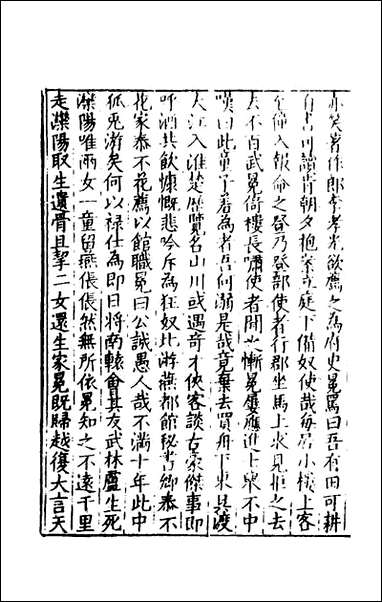 亦笑著作郎李孝光欲薦之為府史冕罵曰吾有田可耕
有書可讀肯朝夕抱案立庭下備奴使哉每居小樓上客
至僮入報命之登乃登部使者行郡坐馬上求見拒之去
去不百武冕倚樓長嘯使者聞之慚冕屢應進士舉不中
嘆曰此童子羞為者吾何溺是哉竟棄去買舟下東吳渡
大江入淮楚歷覽名山川或遇奇才俠客談古豪傑事即
呼酒共飲慷慨悲吟斥為狂奴北游燕都館秘書卿泰不
花家泰不花薦以館職冕曰公誠愚人哉不滿十年此中
狐兎游矣何以禄仕為即日將南轅會其友武林盧生死
灤陽唯兩女一童留燕倀倀然無所依冕知之不遠千里
走灤陽取生遺骨且挈二女還生家冕既歸越復大言天